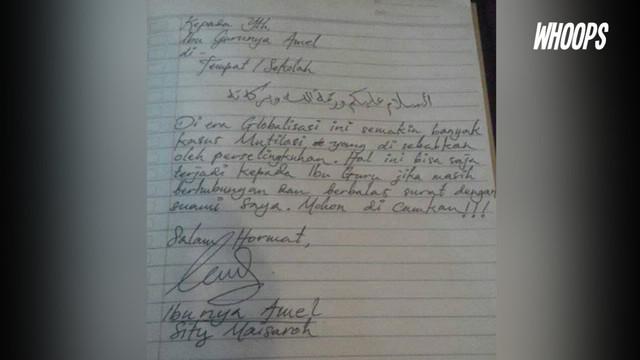 WHOOPS
Kepada Yth.
Ibu Gurunya Amel
di -
Tempat / Sekolah
السلام عليكم ورحمة الله وبركاته
Di era Globalisasi ini semakin banyak
kasus Mutilasi yang di sebabkan
oleh perselingkuhan. Hal ini bisa saja
terjadi kepada Ibu Guru jika masih
berhubungan dan berbalas surat dengan
suami saya. Mohon di camkan!!!
Salam Hormat,
Ibunya Amel
Sity Maisaroh